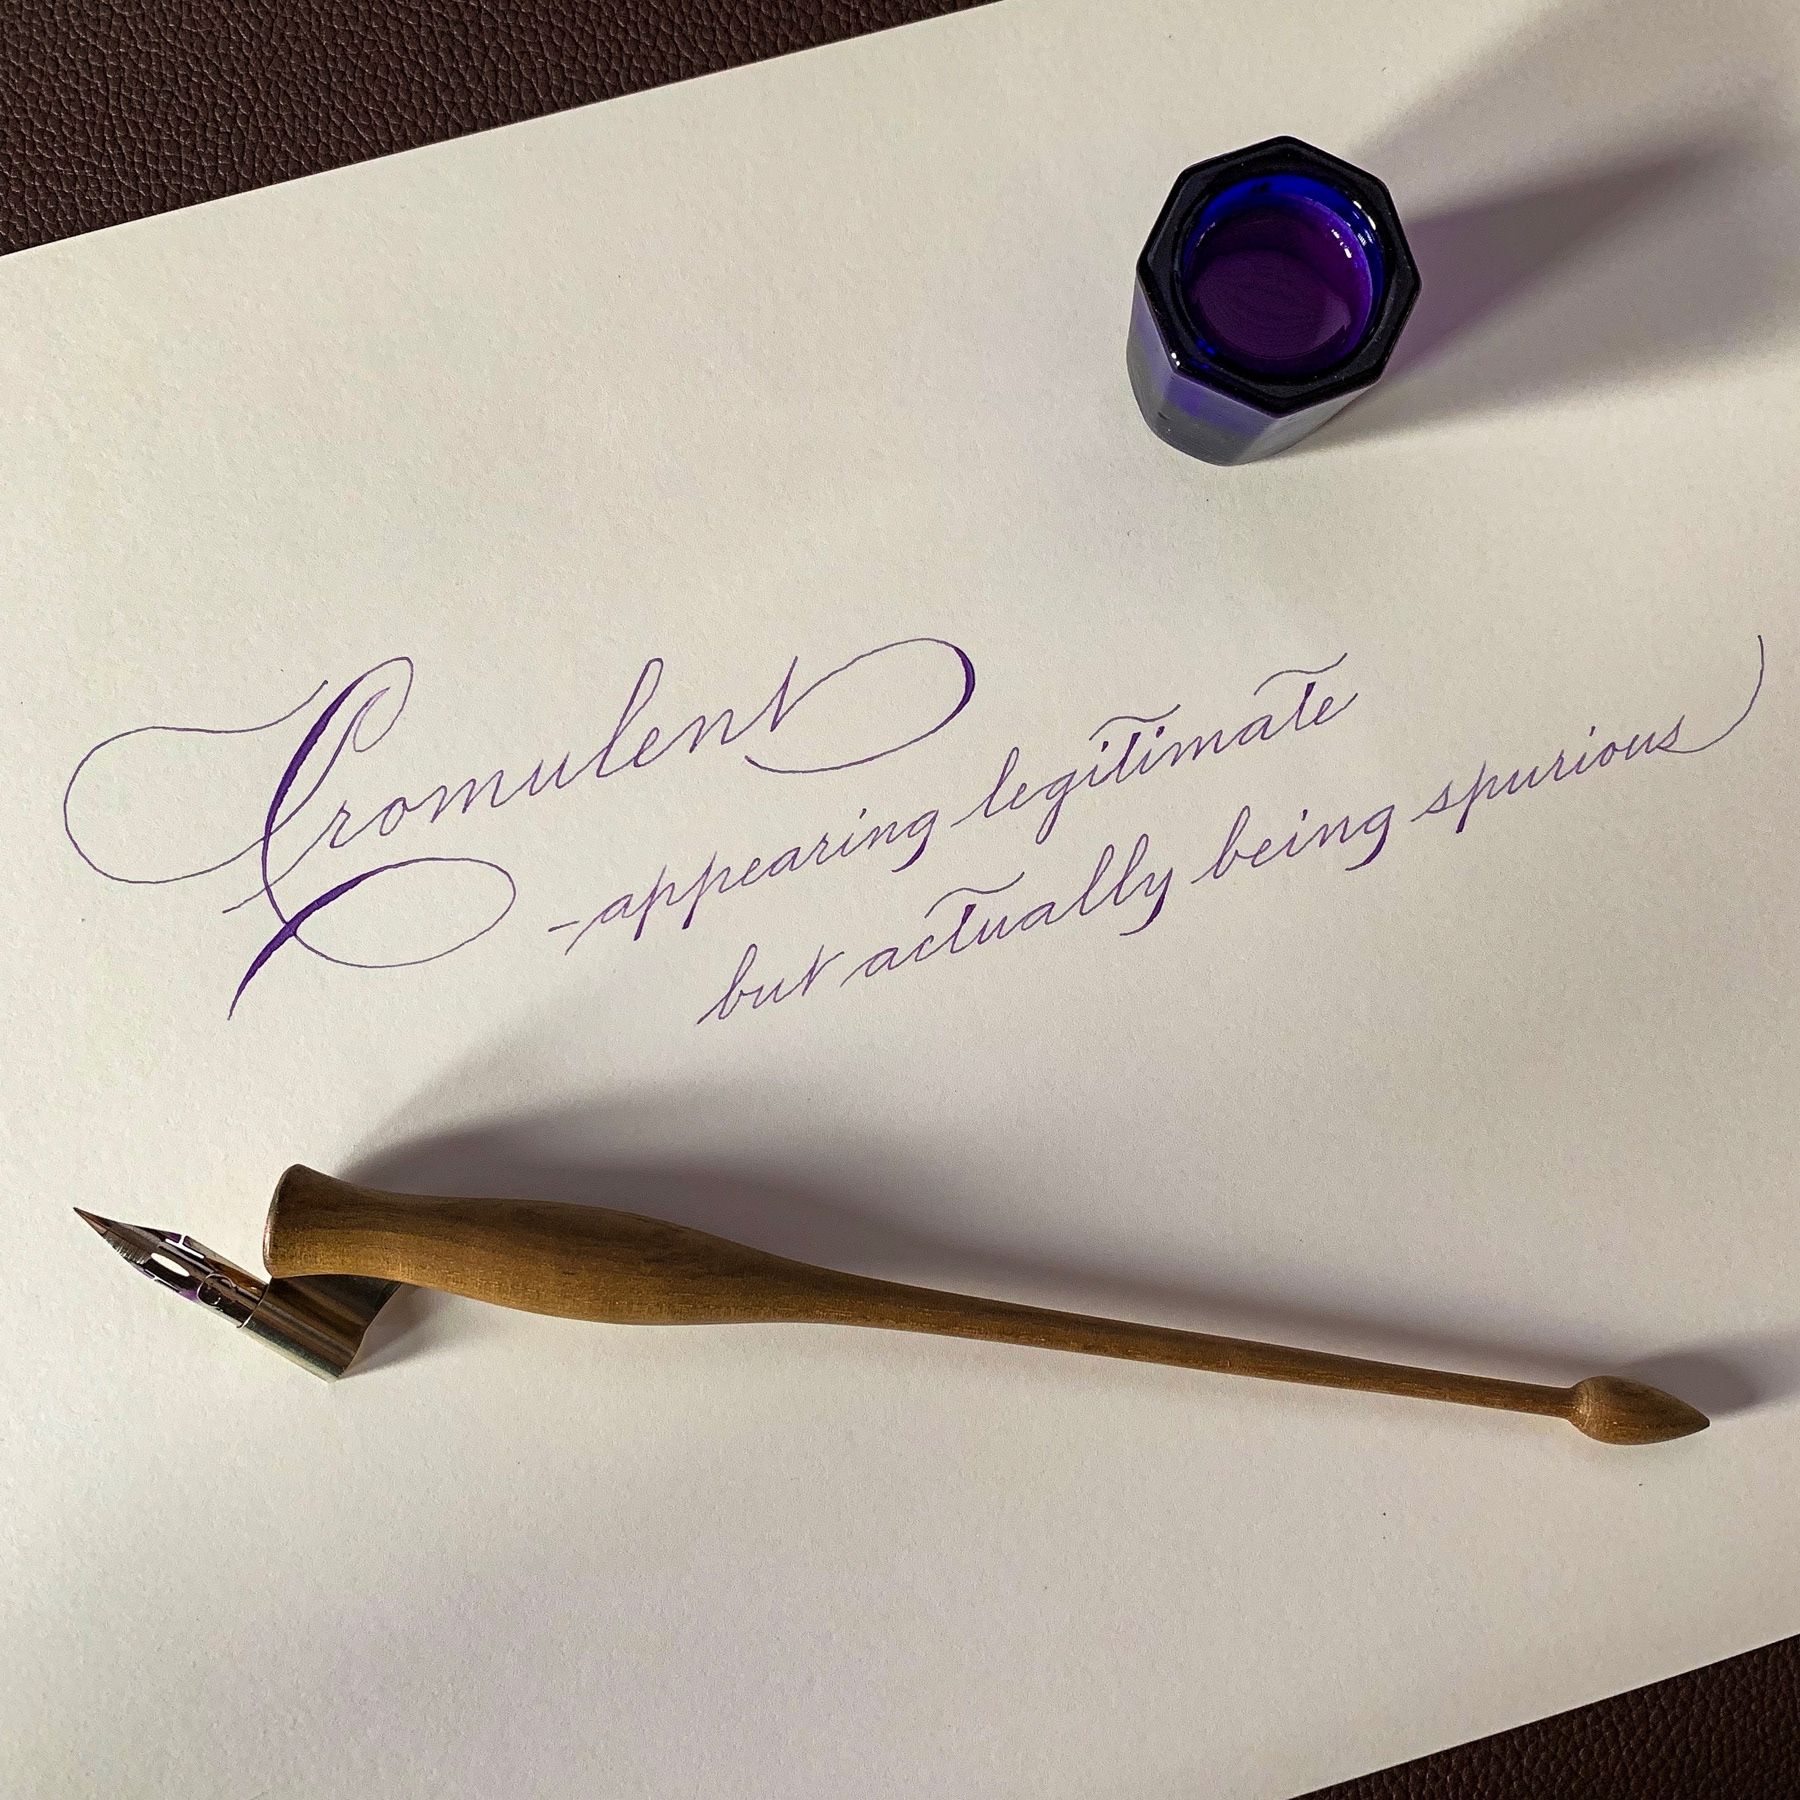 Cromulent
-appearing legitimate
but actually being spurious